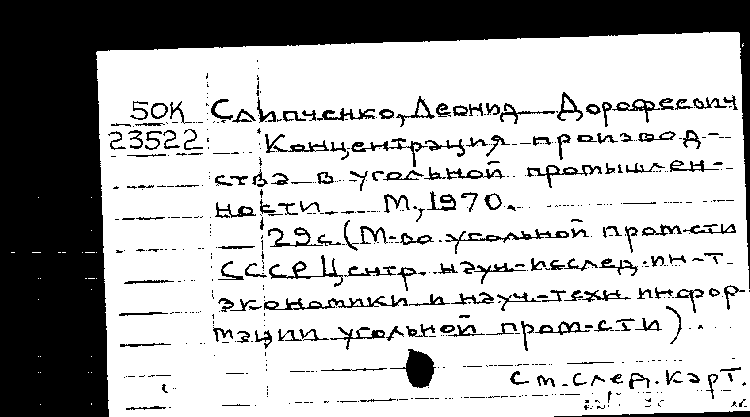 50К Слипченко, Леонид Дорофеевич
23522 Концентрация производ-
ства в угольной промышлен-
ности М., 1970.
29с (М-во угольной пром-сти
СССР Центр. научн-исслед. ин-т
экономики и науч.-техн. инфор-
мации угольной пром-сти).
См. след. карт.